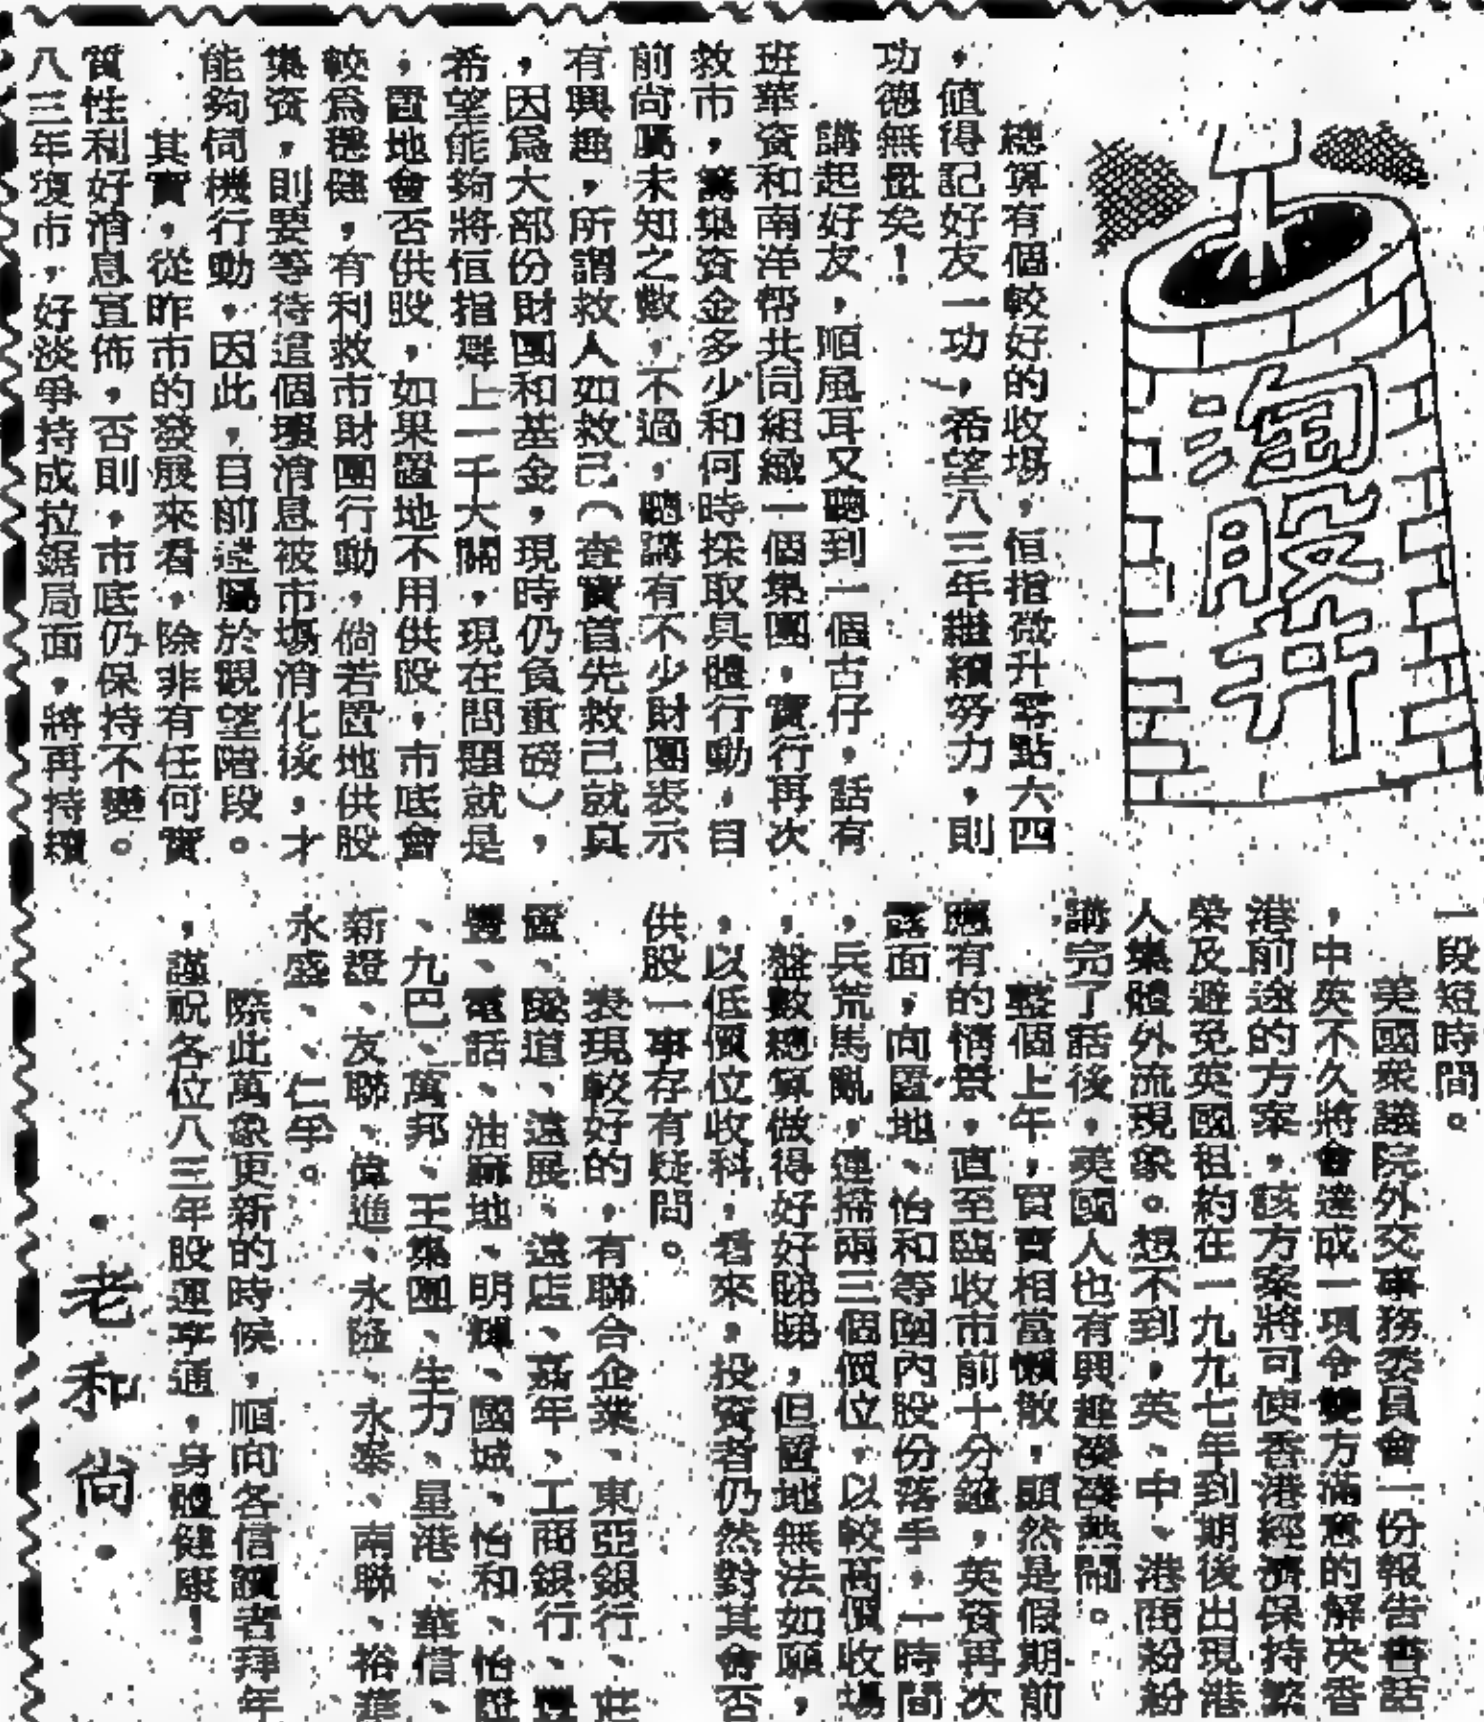 淘股井
總算有個較好的收場，恒指微升零點六四
，値得記好友一功，希望八三年繼續努力，則
功德無量矣！
講起好友，順風耳又聽到一個古仔，話有
班華資和南洋帮共同組織一個集團，實行再次
救市，籌集資金多少和何時採取具體行動，目
前尚屬未知之數，不過，聽講有不少財團表示
有興趣，所謂救人如救己（查實首先救己就真
，因爲大部份財團和基金，現時仍負重磅），
希望能夠將恒指舞上一千大關，現在問題就是
，置地會否供股，如果置地不用供股，市底會
較爲穩健，有利救市財團行動，倘若置地供股
集資，則要等待這個壞消息被市場消化後，才
能夠伺機行動，因此，目前還屬於觀望階段。
其實，從昨市的發展來看，除非有任何實
質性利好消息宣佈，否則，市底仍保持不變。
八三年復市，好淡爭持成拉鋸局面，將再持續
一段短時間。
美國衆議院外交事務委員會一份報告書話
，中英不久將會達成一項令雙方滿意的解決香
港前途的方案，該方案將可使香港經濟保持繁
榮及避免英國租約在一九九七年到期後出現港
人集體外流現象。想不到，英、中、港商紛紛
講完了話後，美國人也有興趣湊湊熱鬧。
整個上午，買賣相當懶散，顯然是假期前
應有的情景，直至臨收市前十分鐘，英資再次
露面，向置地、怡和等圈內股份落手，一時間
，兵荒馬亂，連掃兩三個價位，以較高價收場
，盤數總算做得好好睇睇，但置地無法如願，
，以低價位收科，看來，投資者仍然對其會否
供股一事存有疑問。
表現較好的，有聯合企業、東亞銀行、莊
置、隧道、遠展、遠店、嘉年、工商銀行、
豐、電話、油蔴地、明輝、國城、怡和、怡
、九巴、萬邦、王集團、生力、星港、華信、
新證、友聯、偉進、永隆、永泰、南聯、裕華
永盛、、仁孚。
際此萬象更新的時候，順向各信讀者拜年
，謹祝各位八三年股運亨通，身體健康！
・老和尚・